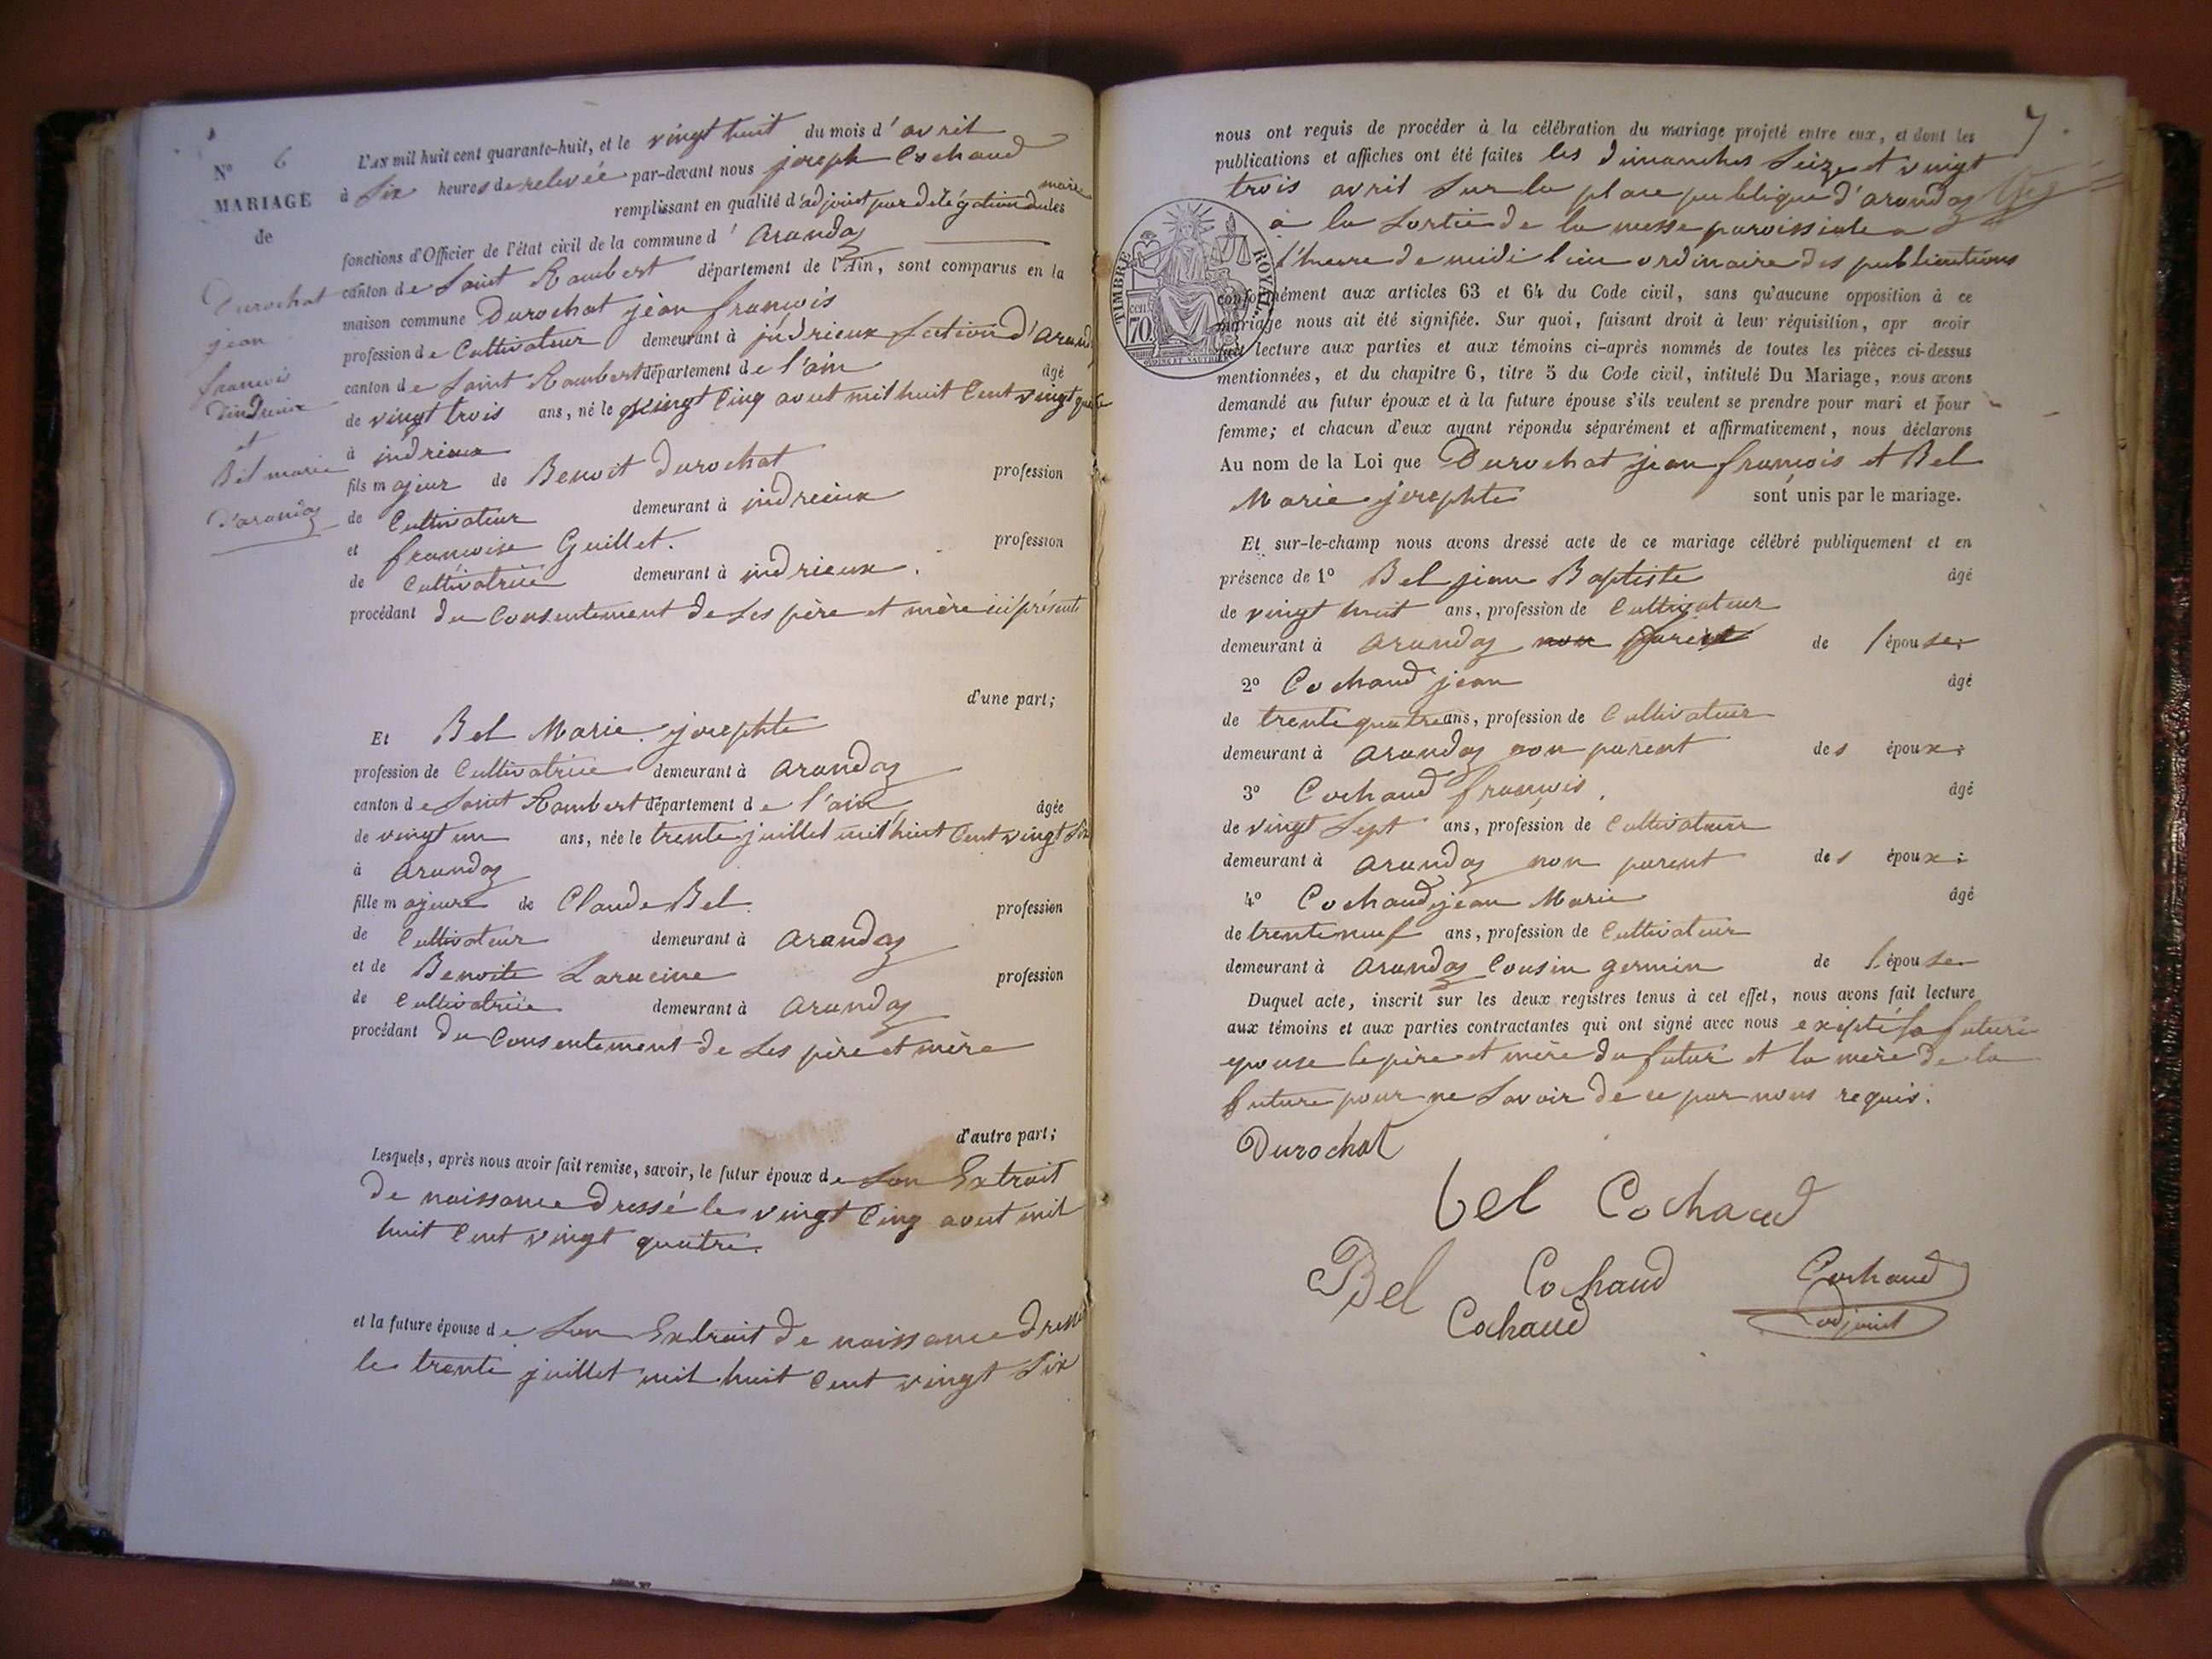 N° 6
MARIAGE
de
Durochat
jean
francois
d'indrieux
et
Bel marie
d'arandaz
L'AN mil huit cent quarante-huit, et le vingt huit du mois d'avril
à Six heures de relevée par-devant nous joseph Cochaud
maire
remplissant en qualité d'adjoint par délégation du les
fonctions d'Officier de l'état civil de la commune d'Arandaz
canton de Saint Rambert département de l'Ain, sont comparus en la
maison commune Durochat jean francois
profession de Cultivateur demeurant à indrieux section d'arand
canton de Saint Rambert département de l'ain âgé
de vingt trois ans, né le vingt Cinq aout mil huit Cent vingt quatre
à indrieux
fils majeur de Benoit Durochat profession
de Cultivateur demeurant à indrieux
et francoise Guillet. profession
de Cultivatrice demeurant à indrieux.
procédant du Consentement de Ses père et mère ici présents
d'une part;
Et Bel Marie josephte
profession de Cultivatrice demeurant à Arandaz
canton de Saint Rambert département de l'ain âgée
de vingt un ans, née le trente juillet mil huit Cent vingt Six
à Arandaz
fille majeure de Claude Bel profession
de Cultivateur demeurant à Arandaz
et de Benoite Laracine profession
de Cultivatrice demeurant à Arandaz
procédant du Consentement de Ses père et mère
d'autre part;
Lesquels, après nous avoir fait remise, savoir, le futur époux de Son Extrait
de naissance dressé le vingt Cinq aout mil
huit Cent vingt quatre.
et la future épouse de Son Extrait de naissance dressé
le trente juillet mil huit Cent vingt Six
7.
nous ont requis de procéder à la célébration du mariage projeté entre eux, et dont les
publications et affiches ont été faites les dimanches Seize et vingt
trois avril Sur la place publique d'arandaz
à la Sortie de la messe paroissiale a
l'heure de midi lieu ordinaire des publications
TIMBRE ROYAL
70 cen.
conformément aux articles 63 et 64 du Code civil, sans qu'aucune opposition à ce
mariage nous ait été signifiée. Sur quoi, faisant droit à leur réquisition, apr avoir
fait lecture aux parties et aux témoins ci-après nommés de toutes les pièces ci-dessus
mentionnées, et du chapitre 6, titre 5 du Code civil, intitulé Du Mariage, nous avons
demandé au futur époux et à la future épouse s'ils veulent se prendre pour mari et pour
femme; et chacun d'eux ayant répondu séparément et affirmativement, nous déclarons
Au nom de la Loi que Durochat jean francois et Bel
Marie josephte sont unis par le mariage.
Et sur-le-champ nous avons dressé acte de ce mariage célébré publiquement et en
présence de 1° Bel jean Baptiste âgé
de vingt huit ans, profession de Cultivateur
demeurant à Arandaz non parent de l'épouse;
2° Cochaud jean âgé
de trente quatre ans, profession de Cultivateur
demeurant à Arandaz non parent des époux;
3° Cochaud francois. âgé
de vingt Sept ans, profession de Cultivateur
demeurant à Arandaz non parent des époux;
4° Cochaud jean Marie âgé
de trente neuf ans, profession de Cultivateur
demeurant à Arandaz Cousin germin de l'épouse
Duquel acte, inscrit sur les deux registres tenus à cet effet, nous avons fait lecture
aux témoins et aux parties contractantes qui ont signé avec nous excepté la future
epouse le père et mère du futur et la mère de la
future pour ne Savoir de ce par nous requis.
Durochat
bel Cochaud
Bel Cochaud Cochaud
Cochaud adjoint